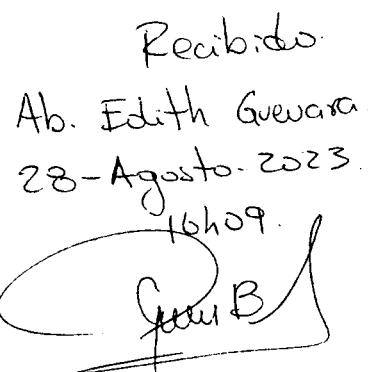 Recibido.
Ab. Edith Guevara.
28-Agosto-2023.
16h09.